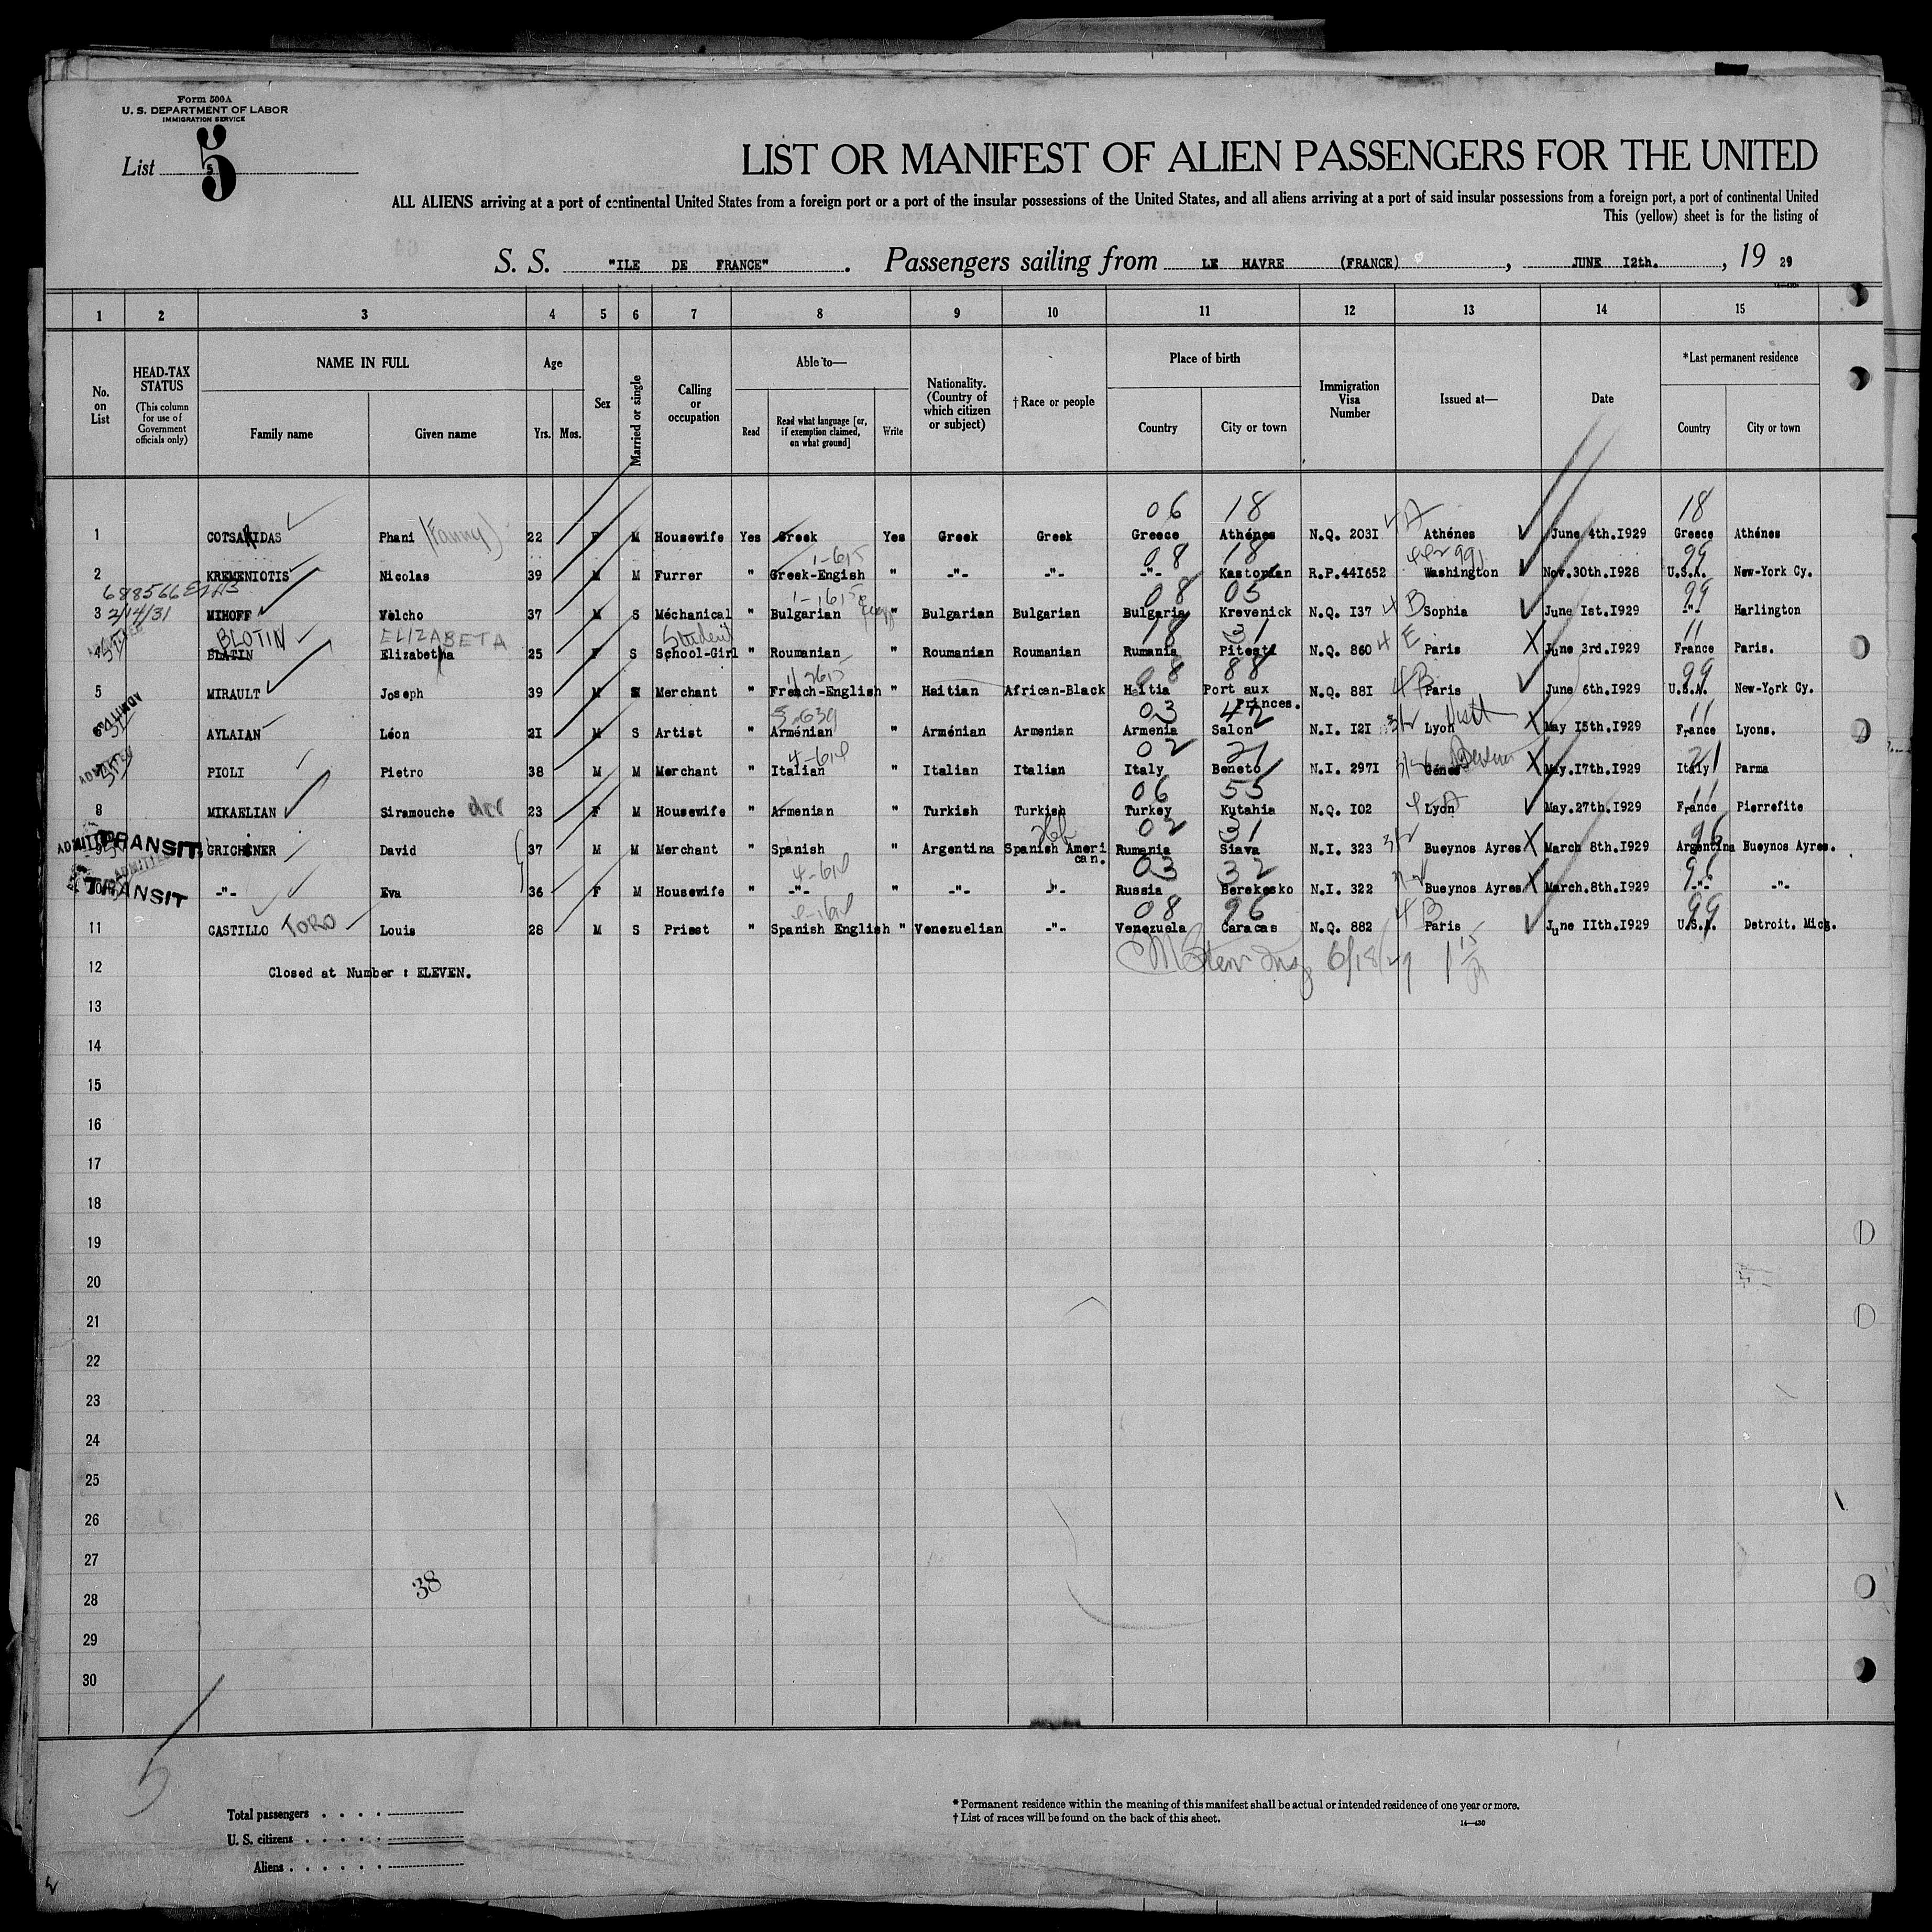 Form 500A
U. S. DEPARTMENT OF LABOR
IMMIGRATION SERVICE
List 5
5
LIST OR MANIFEST OF ALIEN PASSENGERS FOR THE UNITED
ALL ALIENS arriving at a port of continental United States from a foreign port or a port of the insular possessions of the United States, and all aliens arriving at a port of said insular possessions from a foreign port, a port of continental United
This (yellow) sheet is for the listing of
S. S. "ILE DE FRANCE". Passengers sailing from LE HAVRE (FRANCE), JUNE I2th., 19 29
1 2 3 4 5 6 7 8 9 10 11 12 13 14 15
No. on List
HEAD-TAX STATUS
(This column for use of Government officials only)
NAME IN FULL
Family name Given name
Age
Yrs. Mos.
Sex
Married or single
Calling or occupation
Able to—
Read
Read what language [or, if exemption claimed, on what ground]
Write
Nationality. (Country of which citizen or subject)
†Race or people
Place of birth
Country City or town
Immigration Visa Number
Issued at—
Date
*Last permanent residence
Country City or town
06 18 18
1 COTSARIDAS Phani (Fanny) 22 F M Housewife Yes Greek Yes Greek Greek Greece Athénes N.Q. 203I 4A Athénes June 4th.I929 Greece Athénes
1-615 08 18 991 99
2 KREMENIOTIS Nicolas 39 M M Furrer " Greek-Engish " -"- -"- -"- Kastorian R.P.44I652 Washington Nov.30th.I928 U.S.A. New-York Cy.
688566 08 05 99
3 2/14/31 MIHOFF Velcho 37 M S Méchanical " Bulgarian " Bulgarian Bulgarian Bulgaria Krevenick N.Q. I37 4B Sophia June Ist.I929 -"- Harlington
BLOTIN ELIZABETA Student 18 31 11
4 BLATIN Elizabetha 25 F S School-Girl " Roumanian " Roumanian Roumanian Rumania Pitesti N.Q. 860 4E Paris June 3rd.I929 France Paris.
08 88 99
5 MIRAULT Joseph 39 M M Merchant " French-English " Haitian African-Black Haitia Port aux Princes. N.Q. 88I 4B Paris June 6th.I929 U.S.A. New-York Cy.
ADMITTED
03 42 11
6 AYLAIAN Léon 2I M S Artist " Arménian " Arménian Armenian Armenia Salon N.I. I2I 3/2 Lyon Visit May I5th.I929 France Lyons.
ADMITTED
02 21 21
7 PIOLI Pietro 38 M M Merchant " Italian " Italian Italian Italy Beneto N.I. 297I Génes May.I7th.I929 Italy Parma
06 55
8 MIKAELIAN Siramouche 23 F M Housewife " Armenian " Turkish Turkish Turkey Kutahia N.Q. I02 Lyon May.27th.I929 France Pierrefite
Heb 02 31 96
ADMITTED TRANSIT
9 GRICHENER David 37 M M Merchant " Spanish " Argentina Spanish Ameri can. Rumania Siava N.I. 323 3/2 Bueynos Ayres March 8th.I929 Argentina Bueynos Ayres.
ADMITTED
03 32 96
TRANSIT
10 -"- Eva 36 F M Housewife " -"- " -"- -"- Russia Berekesko N.I. 322 Bueynos Ayres March.8th.I929 -"- -"-
08 96 99
11 CASTILLO TORO Louis 28 M S Priest " Spanish English " Venezuelian -"- Venezuela Caracas N.Q. 882 4B Paris June IIth.I929 U.S.A. Detroit. Micg.
6/18/29
12 Closed at Number : ELEVEN.
13
14
15
16
17
18
19
20
21
22
23
24
25
26
27
38
28
29
30
5
Total passengers
U. S. citizens
Aliens
* Permanent residence within the meaning of this manifest shall be actual or intended residence of one year or more.
† List of races will be found on the back of this sheet.
14—430